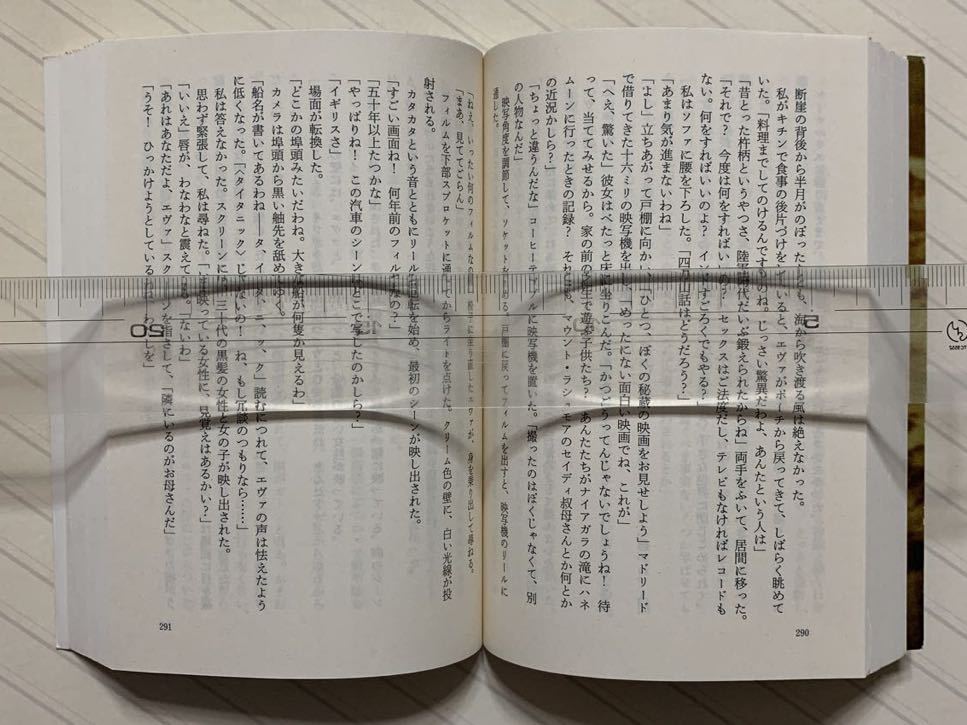 断崖の背後から半月がのぼったとも、海から吹き渡る風は絶えなかった。
私がキチンで食事の後片づけをしていると、エヴァがポーチから戻ってきて、しばらく眺めて
いた。「料理までしてのけるんですものね。じっさい驚異だわよ、あんたという人は」
「昔とった杵柄というやつさ、陸軍時代だいぶ鍛えられたからね」両手をふいて、居間に移った。
「それで？　今度は何をすればいいの？　セックスはご法度だし、テレビもなければレコードも
ない。何をすればいいのよ？　インすごろくでもやる？」
私はソファに腰を下ろした。「四方山話はどうだろう？」
「あまり気が進まないわね」
「よし」立ちあがって戸棚に向かい、「ひとつ、ぼくの秘蔵の映画をお見せしよう」マドリード
で借りてきた十六ミリの映写機を出し、「めったにない面白い映画でね、これが」
「へえ、驚いた」彼女はべたっと床に坐りこんだ。「かつどうってんじゃないでしょうね！　待
って、当ててみせるから。家の前の芝生で遊ぶ子供たち？　あんたたちがナイアガラの滝にハネ
ムーンに行ったときの記録？　それとも、マウント・ラシュモアのセイディ叔母さんとか何とか
の近況かしら？」
「ちょっと違うんだな」コーヒーテーブルに映写機を置いた。「撮ったのはぼくじゃなくて、別
の人物なんだ」
映写角度を調節して、ソケットを戸棚に戻ってフィルムを出すと、映写機のリールに
通した。
290
「ねえ、いったい何のフィルムなの」坐り直したエヴァが、身を乗り出して尋ねる。
「まあ、見ててごらん」
フィルムを下部スプロケットに通してからライトを点けた。クリーム色の壁に、白い光線が投
射される。
カタカタという音とともにリールが回転を始め、最初のシーンが映し出された。
「すごい画面ね！　何年前のフィルムなの？」
「五十年以上たつかな」
「やっぱりね！　この汽車のシーンはどこで写したのかしら？」
「イギリスさ」
場面が転換した。
「どこかの埠頭みたいだわね。大きな船が何隻か見えるわ」
カメラは埠頭から黒い舳先を舐めてゆく。
「船名が書いてあるわね――タ、イ、タ、ニ、ッ、ク」読むにつれて、エヴァの声は怯えたよう
に低くなった。「〈タイタニック〉じゃないの！　ね、もし冗談のつもりなら……」
私は答えなかった。スクリーンには、三十代の黒髪の女性と女の子が映し出された。
思わず緊張して、私は尋ねた。「いま映っている女性に、見覚えはあるかい？」
「いいえ」唇が、わなわなと震えている。「ないわ」
「あれはあなただよ、エヴァ」スクリーンを指さして、「隣にいるのがお母さんだ」
「うそ！　ひっかけようとしているわね、わたしを」
291
5
15
50